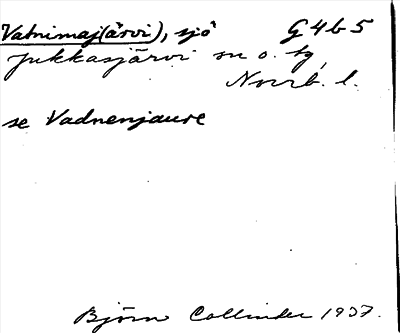 Vatnimaj(ärvi), sjö G4b5
Jukkasjärvi sn o. tg,
Norrb. l.
se Vadnenjaure
Björn Collinder 1937.